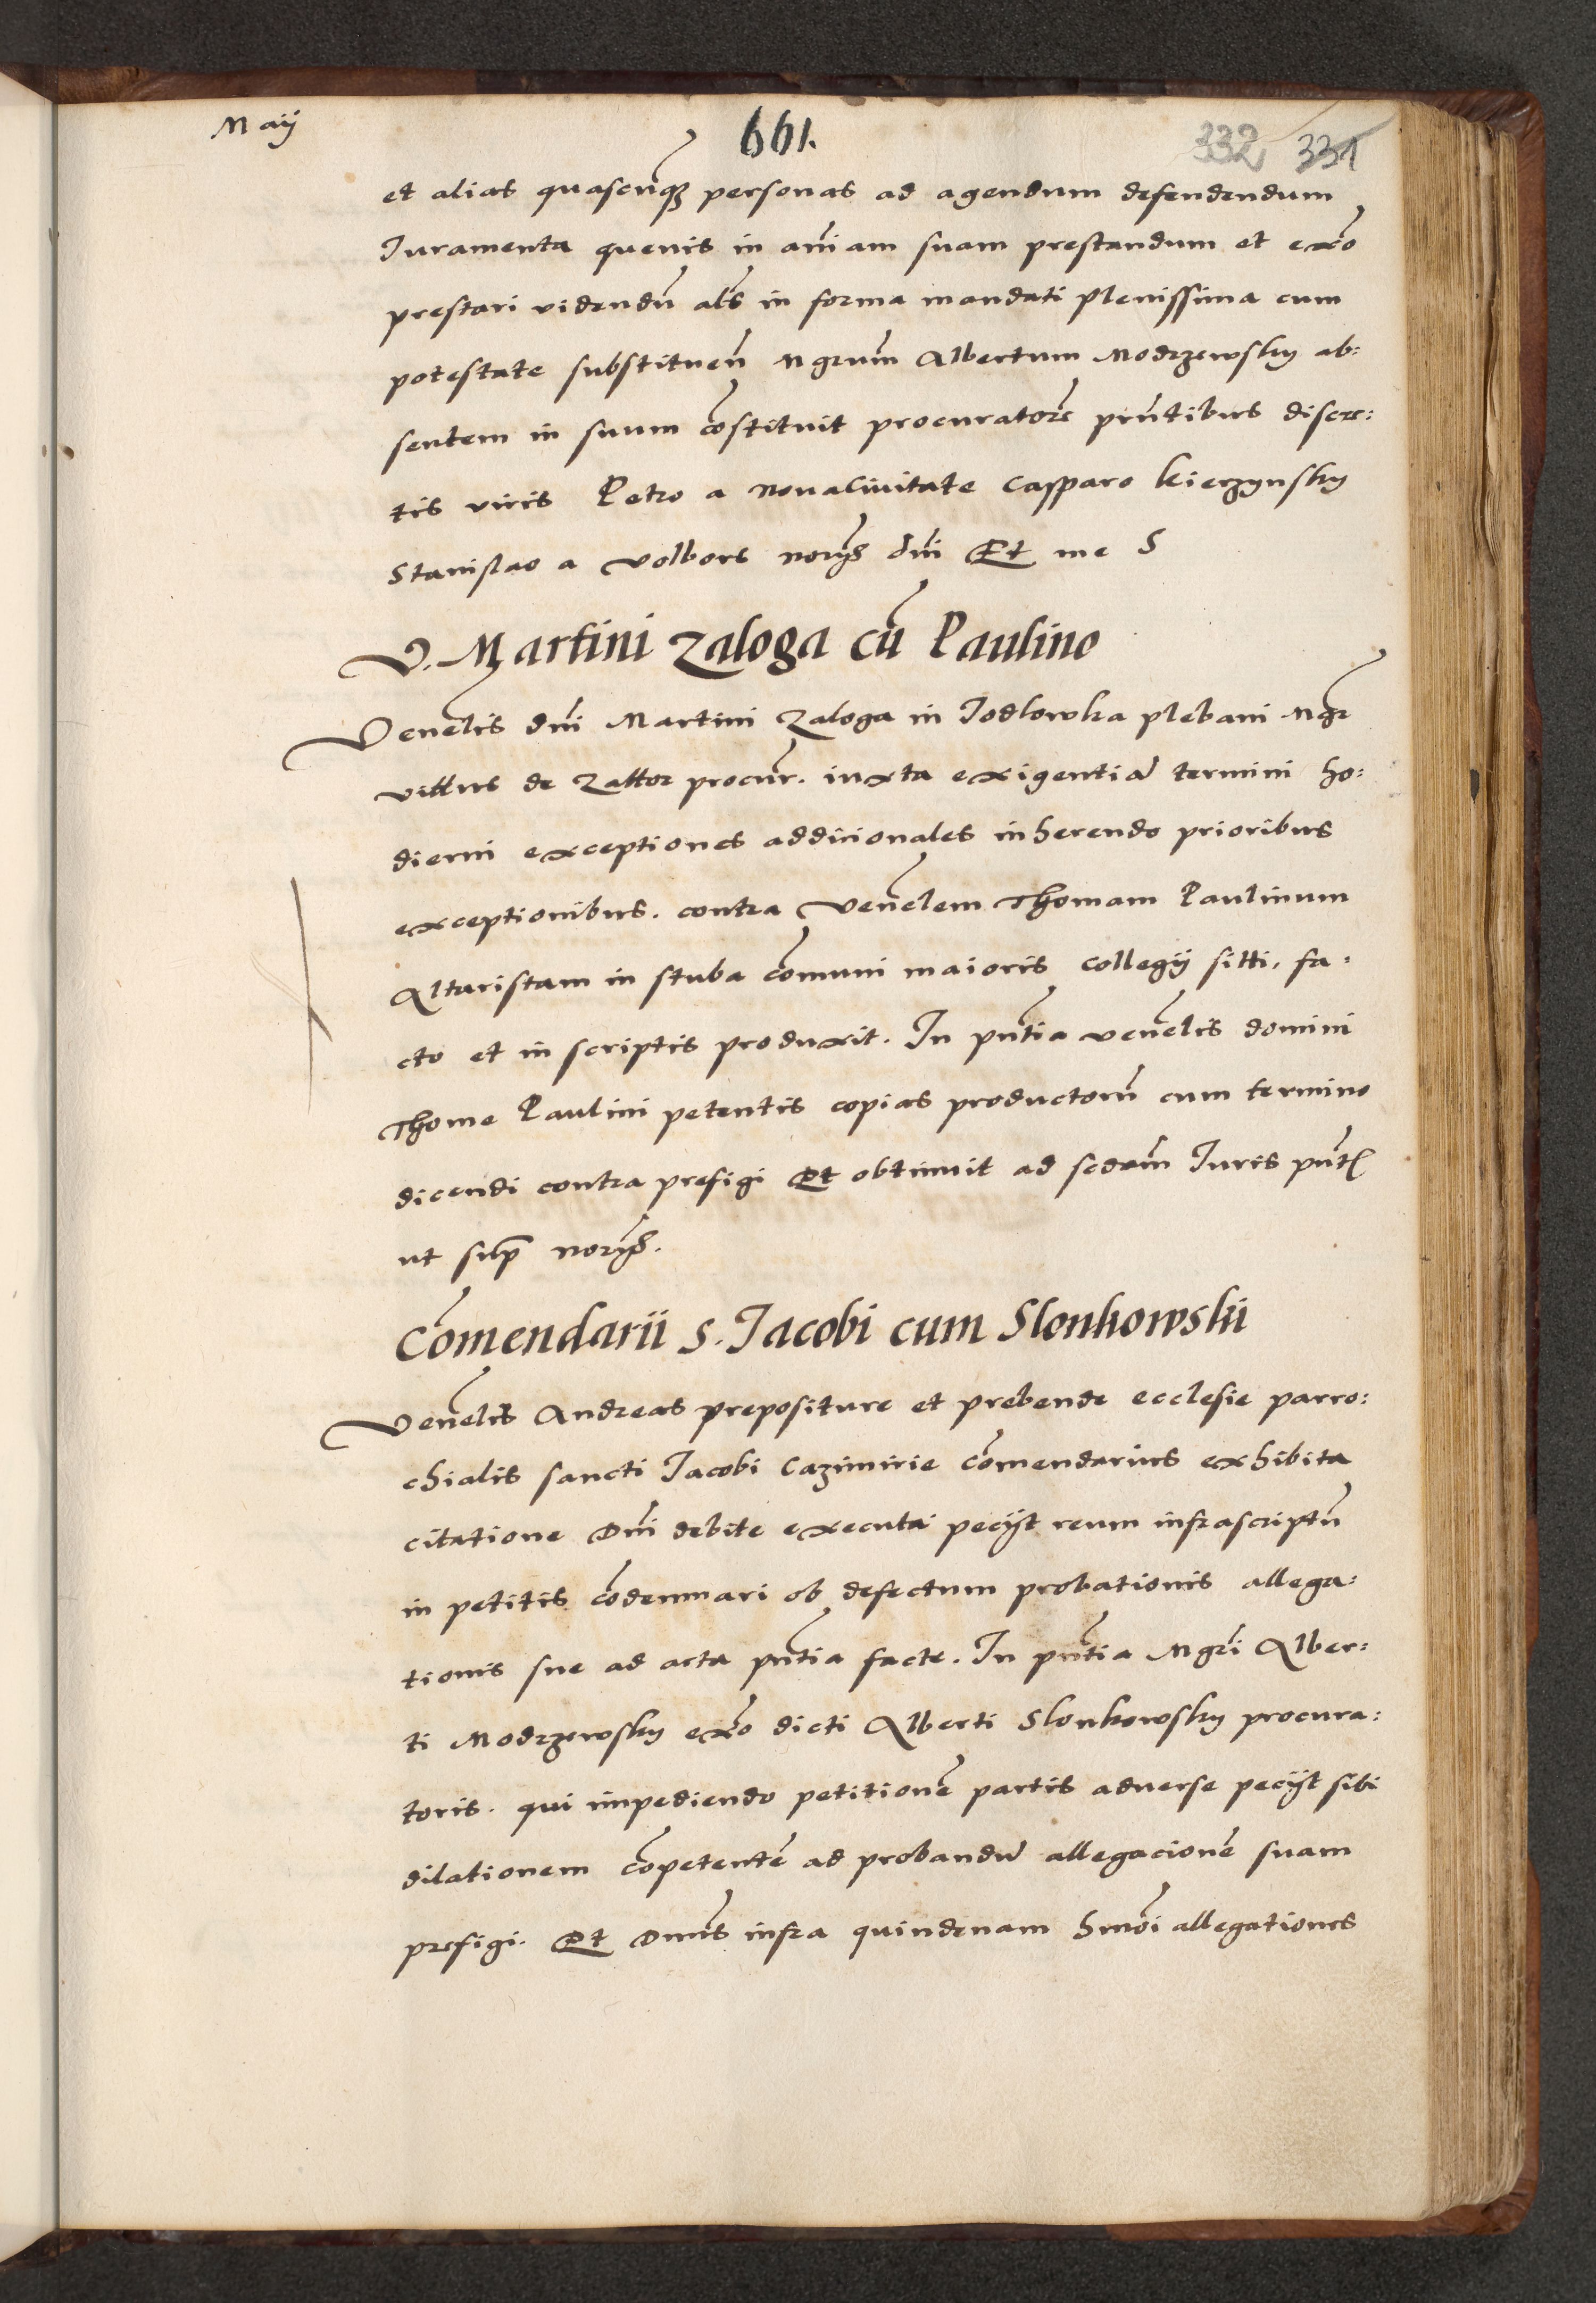 Maij
661.
332 331
et alias quascũqȝ personas ad agendum defendendum
Iuramenta quevis in aĩam suam prestandum et exõ
prestari videndũ als̃ in forma mandati plenissima cum
potestate substituen̄ Mgrum̃ Albertum Modrzewsky ab:
sentem in suum cõstituit procuratorẽ prñtibus discre:
tis viris Petro a Novacivitate Casparo Kierzynsky
Stanislao a Volbors norijs dñi Et me S
V. Martini Zaloga cũ Paulino
Venelis̃ dñi Martini Zaloga in Jodlowka plebani Mgr
villus de Zattor procur̃. iuxta exigentiã termini ho:
dierni exceptiones addicionales inherendo prioribus
exceptionibus. contra Venẽlem Thomam Paulinum
Altaristam in stuba cõmuni maioris collegij sitti, fa:
cto et in scriptis produxit. In pñtia venẽlis domini
Thome Paulini petentis copias productorũ cum termino
dicendi contra prefigi Et obtinuit ad scdam̃ Iuris pñt
ut sup̃ norijs.
Cõmendarii S. Jacobi cum Slonkowskii
Venẽlis Andreas prepositure et prebende ecclesie parro:
chialis sancti Jacobi Cazimirie Cõmendarius exhibita
citatione Dñi debite executa pecijt reum infrascriptũ
in petitis cõdemnari ob defectum probationis allega:
tionis sue ad acta pñtia facte. In pñtia Mgri Alber:
ti Modrzewsky exõ dicti Alberti Slonkowsky procura:
toris. qui impediendo petitionẽ partis adverse pecijt sibi
dilationem cõpetentẽ ad probandũ allegacionẽ suam
prefigi. Et Dnus̃ infra quindenam hmõi allegationes